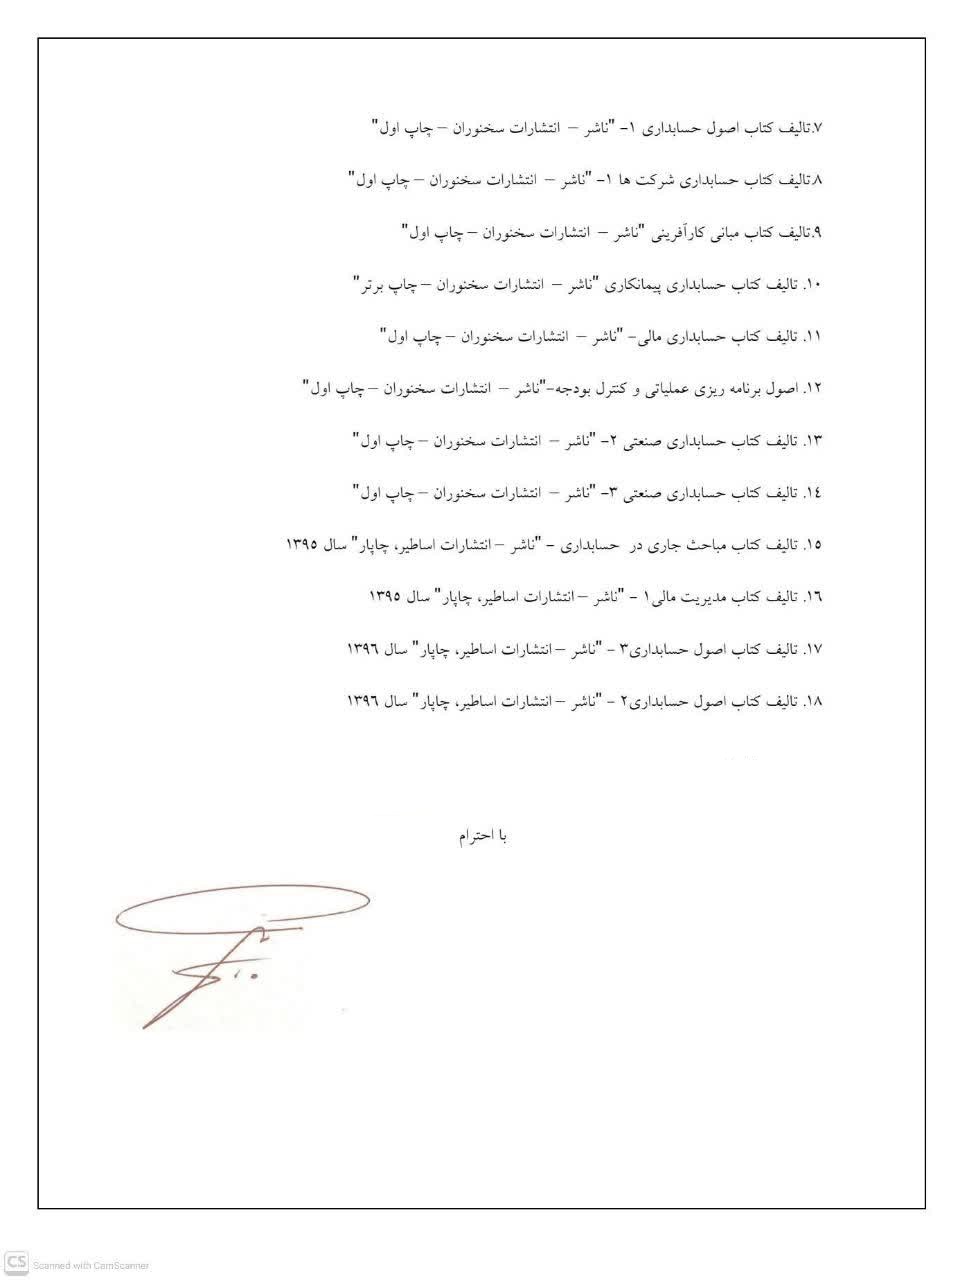 ۷.تالیف کتاب اصول حسابداری ۱- "ناشر – انتشارات سخنوران – چاپ اول"
۸.تالیف کتاب حسابداری شرکت ها ۱- "ناشر – انتشارات سخنوران – چاپ اول"
۹.تالیف کتاب مبانی کارآفرینی "ناشر – انتشارات سخنوران – چاپ اول"
۱۰. تالیف کتاب حسابداری پیمانکاری "ناشر – انتشارات سخنوران – چاپ برتر"
۱۱. تالیف کتاب حسابداری مالی- "ناشر – انتشارات سخنوران – چاپ اول"
۱۲. اصول برنامه ریزی عملیاتی و کنترل بودجه-"ناشر – انتشارات سخنوران – چاپ اول"
۱۳. تالیف کتاب حسابداری صنعتی ۲- "ناشر – انتشارات سخنوران – چاپ اول"
۱٤. تالیف کتاب حسابداری صنعتی ۳- "ناشر – انتشارات سخنوران – چاپ اول"
۱٥. تالیف کتاب مباحث جاری در حسابداری - "ناشر – انتشارات اساطیر، چاپار" سال ۱۳۹٥
۱٦. تالیف کتاب مدیریت مالی۱ - "ناشر – انتشارات اساطیر، چاپار" سال ۱۳۹٥
۱۷. تالیف کتاب اصول حسابداری۳ - "ناشر – انتشارات اساطیر، چاپار" سال ۱۳۹٦
۱۸. تالیف کتاب اصول حسابداری۲ - "ناشر – انتشارات اساطیر، چاپار" سال ۱۳۹٦
با احترام
CS Scanned with CamScanner